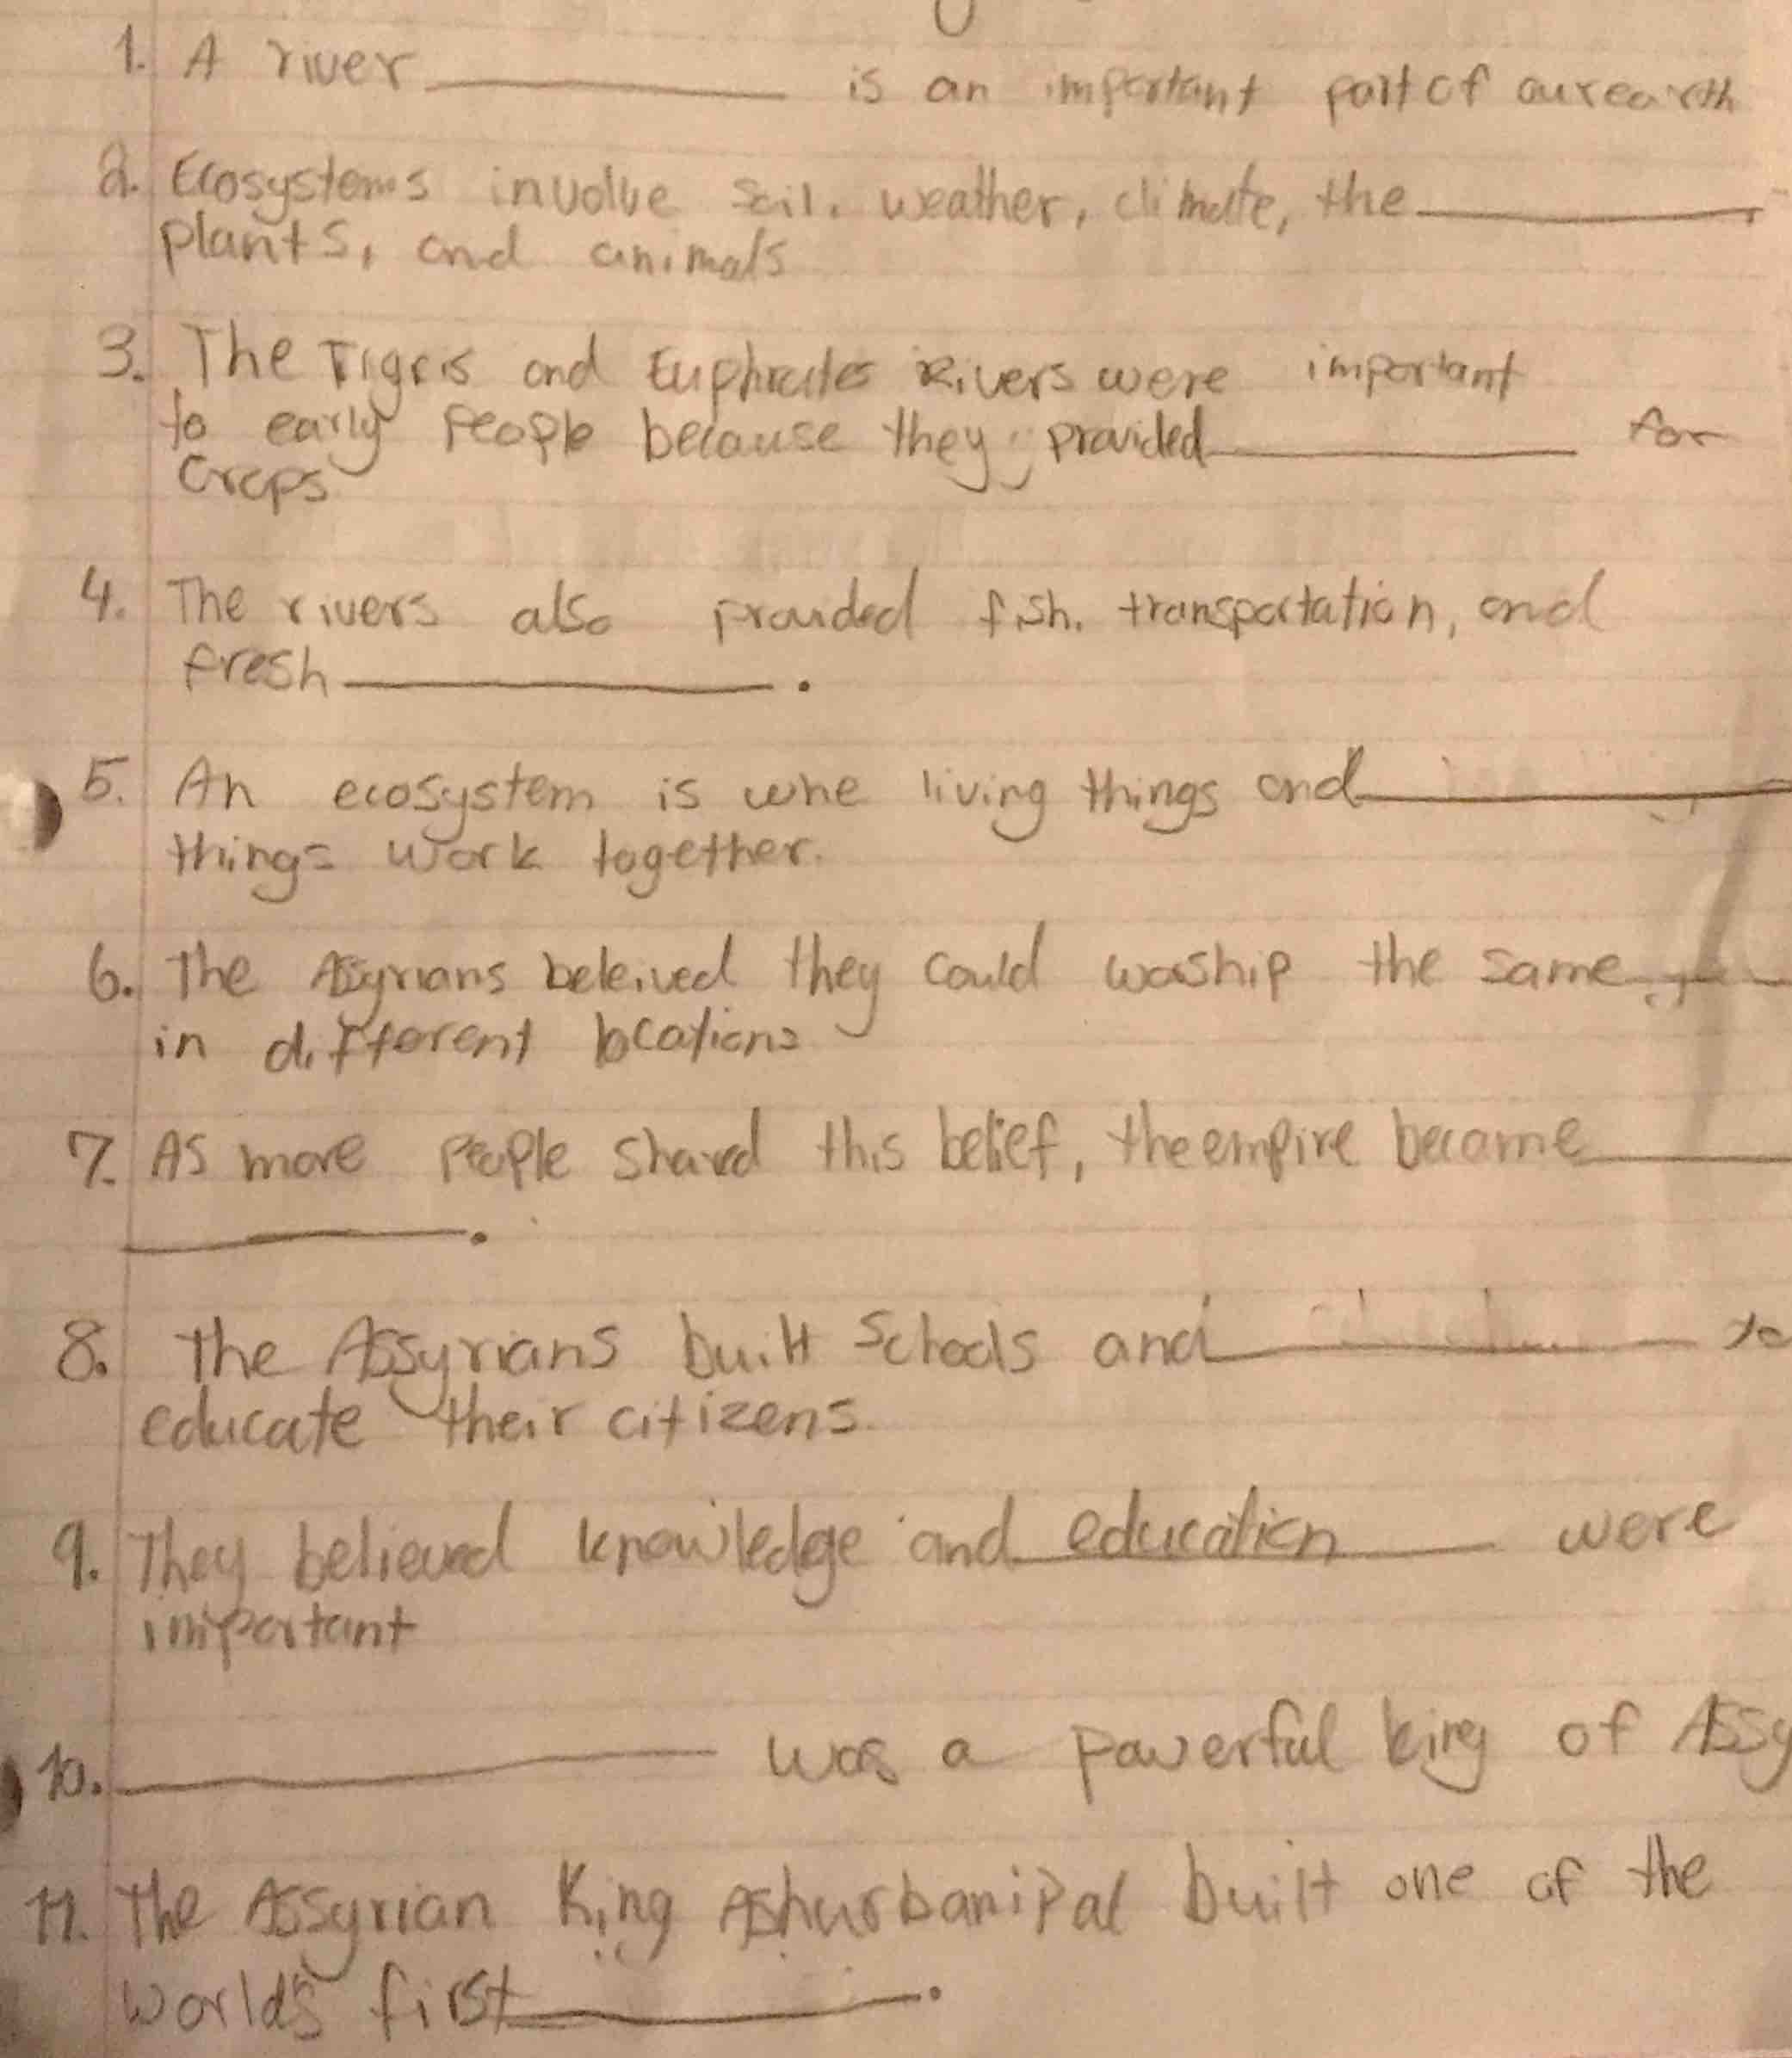 1. A river ________ is an important part of our earth
2. Ecosystems involve soil, weather, climate, the ________,
plants, and animals
3. The Tigris and Euphrates Rivers were important
to early people because they provided ________ for
crops
4. The rivers also provided fish, transportation, and
fresh ________.
5. An ecosystem is whe living things and ________
things work together.
6. The Assyrians beleived they could worship the same ____
in different locations
7. As more people shared this belief, the empire became ____
________.
8. The Assyrians built schools and ________ to
educate their citizens.
9. They believed knowledge and education were
important
10. ________ was a powerful king of Assy
11. The Assyrian King Ashurbanipal built one of the
world's first ________.